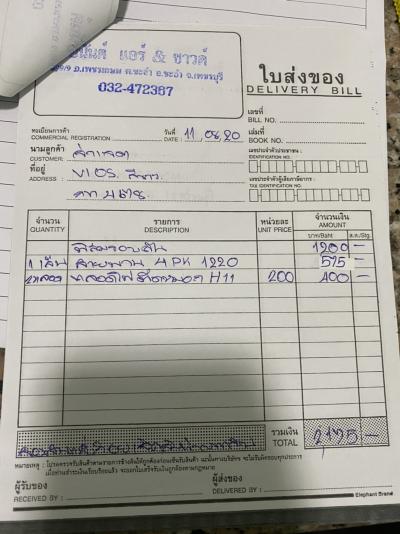 แอร์ & ซาวด์
ถ.เพชรเกษม ต.ชะอำ อ.ชะอำ จ.เพชรบุรี
032-472387
ใบส่งของ
DELIVERY BILL
เลขที่
BILL NO.
ทะเบียนการค้า
COMMERCIAL REGISTRATION
วันที่
DATE 11.08.20
เล่มที่
BOOK NO.
นามลูกค้า
CUSTOMER:
เลขประจำตัวประชาชน :
IDENTIFICATION NO.
ที่อยู่
ADDRESS : VIOS
เลขประจำตัวผู้เสียภาษีอากร :
TAX IDENTIFICATION NO.
จำนวน รายการ หน่วยละ จำนวนเงิน
QUANTITY DESCRIPTION UNIT PRICE AMOUNT
บาท/Baht ส.ต./Stg.
1200 -
1 เส้น สายพาน 4PK 1220 575 -
หลอดไฟ H11 200 400 -
รวมเงิน
TOTAL 2175.-
หมายเหตุ : โปรดตรวจรับสินค้าตามรายการข้างต้นให้ถูกต้องก่อนเซ็นรับสินค้า
ผู้รับของ
RECEIVED BY :
ผู้ส่งของ
DELIVERED BY :
Elephant Brand